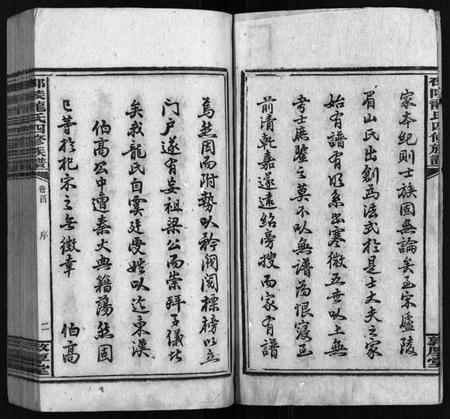 邵陵龍氏四修族譜
家本紀則士族固無論矣至宋廬陵
眉山氏出創為法式於是士大夫之家
始有譜有明系出寒微五世以上無
考士應鑒之莫不以無譜為恨寖至
前清乾嘉遂遠紹旁搜而家有譜
敦厚堂
焉然因而附勢以矜閥閱標榜以立
門戶遂有妄祖梁公而崇拜子儀比
矣我龍氏自虞廷受姓以迄東漢
伯高公中遭秦火典籍蕩然固
已等於杞宋之無徵幸
伯高
邵陵龍氏四修族譜
卷首
序
二
敦厚堂